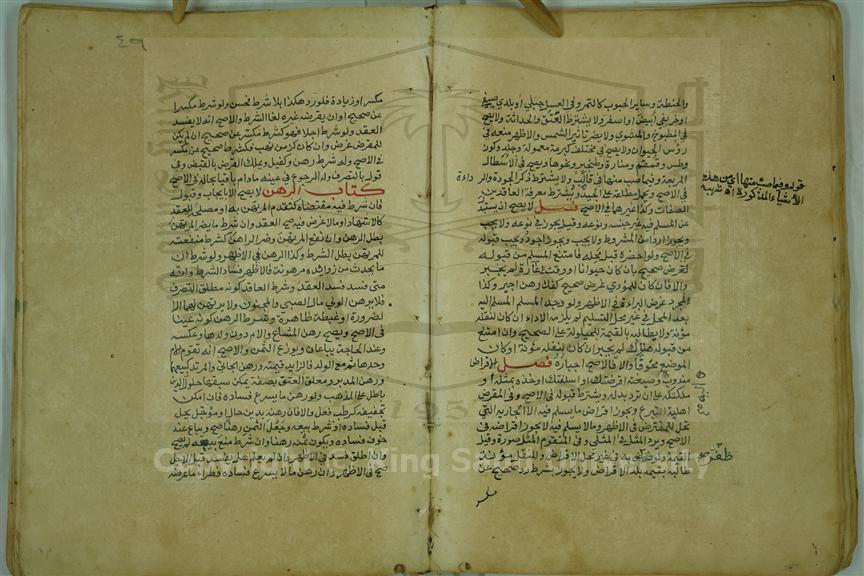 والحنطة وساير الحبوب كالتمر وفي العسل جبلي او بلدي صيفي
او خريفي ابيض او اصفر ولا يشترط العتق والحداثة ولا يصح
في المطبوخ والمشوي ولا يضر تاثير الشمس والاظهر منعه في
رؤس الحيوان ولا يصح في مختلف كبرمة معمولة وجلد وكوز
وطس وقمقم ومنارة وطنجير ونحوها ويصح في الاسطال
المربعة وفيما صب منها في قالب ولا يشترط ذكر الجودة والرداءة
في الاصح ويحمل مطلقه على الجيد ويشترط معرفة العاقدين
الصفات وكذا غيرهما في الاصح فصل لا يصح ان يستبدل
عن المسلم فيه غير جنسه ونوعه وقيل يجوز في نوعه ولا يجب
ويجوز اردا من المشروط ولا يجب ويجوز اجود ويجب قبوله
في الاصح ولو احضره قبل محله فامتنع المسلم من قبوله
لغرض صحيح بان كان حيوانا او وقت غارة لم يجبر
والا فان كان للمؤدي غرض صحيح كفك رهن اجبر وكذا
لمجرد غرض البراءة في الاظهر ولو وجد المسلم المسلم اليه
بعد المحل في غير محل التسليم لم يلزمه الاداء ان كان لنقله
مؤنة ولا يطالبه بالقيمة للحيلولة على الصحيح وان امتنع
من قبوله هناك لم يجبر ان كان لنقله مؤنة او كان
الموضع مخوفا والا فالاصح اجباره فصل الاقراض
مندوب وصيغته اقرضتك او اسلفتك او خذه بمثله او
ملكتكه على ان ترد بدله ويشترط قبوله في الاصح وفي المقرض
اهلية التبرع ويجوز اقراض ما يسلم فيه الا الجارية التي
تحل للمقترض في الاظهر وما لا يسلم فيه لا يجوز اقراضه في
الاصح ويرد المثل في المثلي وفي المتقوم المثل صورة وقيل
القيمة ولو ظفر به في غير محل الاقراض وللنقل مؤنة
طالبه بقيمة بلد الاقراض ولا يجوز بشرط رد صحيح عن
مكسر
قوله وفيما صب منها اي من هذه
الاشياء المذكورة اه شربيه
ظفر صح
مكسر او زيادة فلو رد هكذا بلا شرط فحسن ولو شرط مكسرا
عن صحيح او ان يقرضه غيره لغا الشرط والاصح انه لا يفسد
العقد ولو شرط اجلا فهو كشرط مكسر عن صحيح ان لم يكن
للمقرض غرض وان كان كزمن نهب فكشرط صحيح عن مكسر
في الاصح وله شرط رهن وكفيل ويملك القرض بالقبض وفي
قول بالتصرف وله الرجوع في عينه ما دام باقيا بحاله في الاصح
كتاب الرهن لا يصح الا بايجاب وقبول
فان شرط فيه مقتضاه كتقدم المرتهن به او مصلحة للعقد
كالاشهاد او ما لا غرض فيه صح العقد وان شرط ما يضر المرتهن
بطل الرهن وان نفع المرتهن وضر الراهن كشرط منفعته
للمرتهن بطل الشرط وكذا الرهن في الاظهر ولو شرط ان
ما يحدث من زوائده مرهونة فالاظهر فساد الشرط وانه
متى فسد فسد العقد وشرط العاقد كونه مطلق التصرف
فلا يرهن الولي مال الصبي والمجنون ولا يرتهن لهما الا
لضرورة او غبطة ظاهرة وشرط الرهن كونه عينا
في الاصح ويصح رهن المشاع والام دون ولدها وعكسه
وعند الحاجة يباعان ويوزع الثمن والاصح انه تقوم الام
وحدها ثم مع الولد فالزايد قيمته ورهن الجاني والمرتد كبيعهما
ورهن المدبر ومعلق العتق بصفة يمكن سبقها حلول الدين
باطل على المذهب ولو رهن ما يسرع فساده فان امكن
تجفيفه كرطب فعل والا فان رهنه بدين حال او مؤجل يحل
قبل فساده او شرط بيعه وجعل الثمن رهنا صح ويباع عند
خوف فساده ويكون ثمنه رهنا وان شرط منع بيعه لم يصح
وان اطلق فسد في الاظهر وان لم يعلم هل يفسد قبل الاجل
صح في الاظهر وان رهن ما لا يسرع فساده فطرا ما عرضه
٤٩
1957